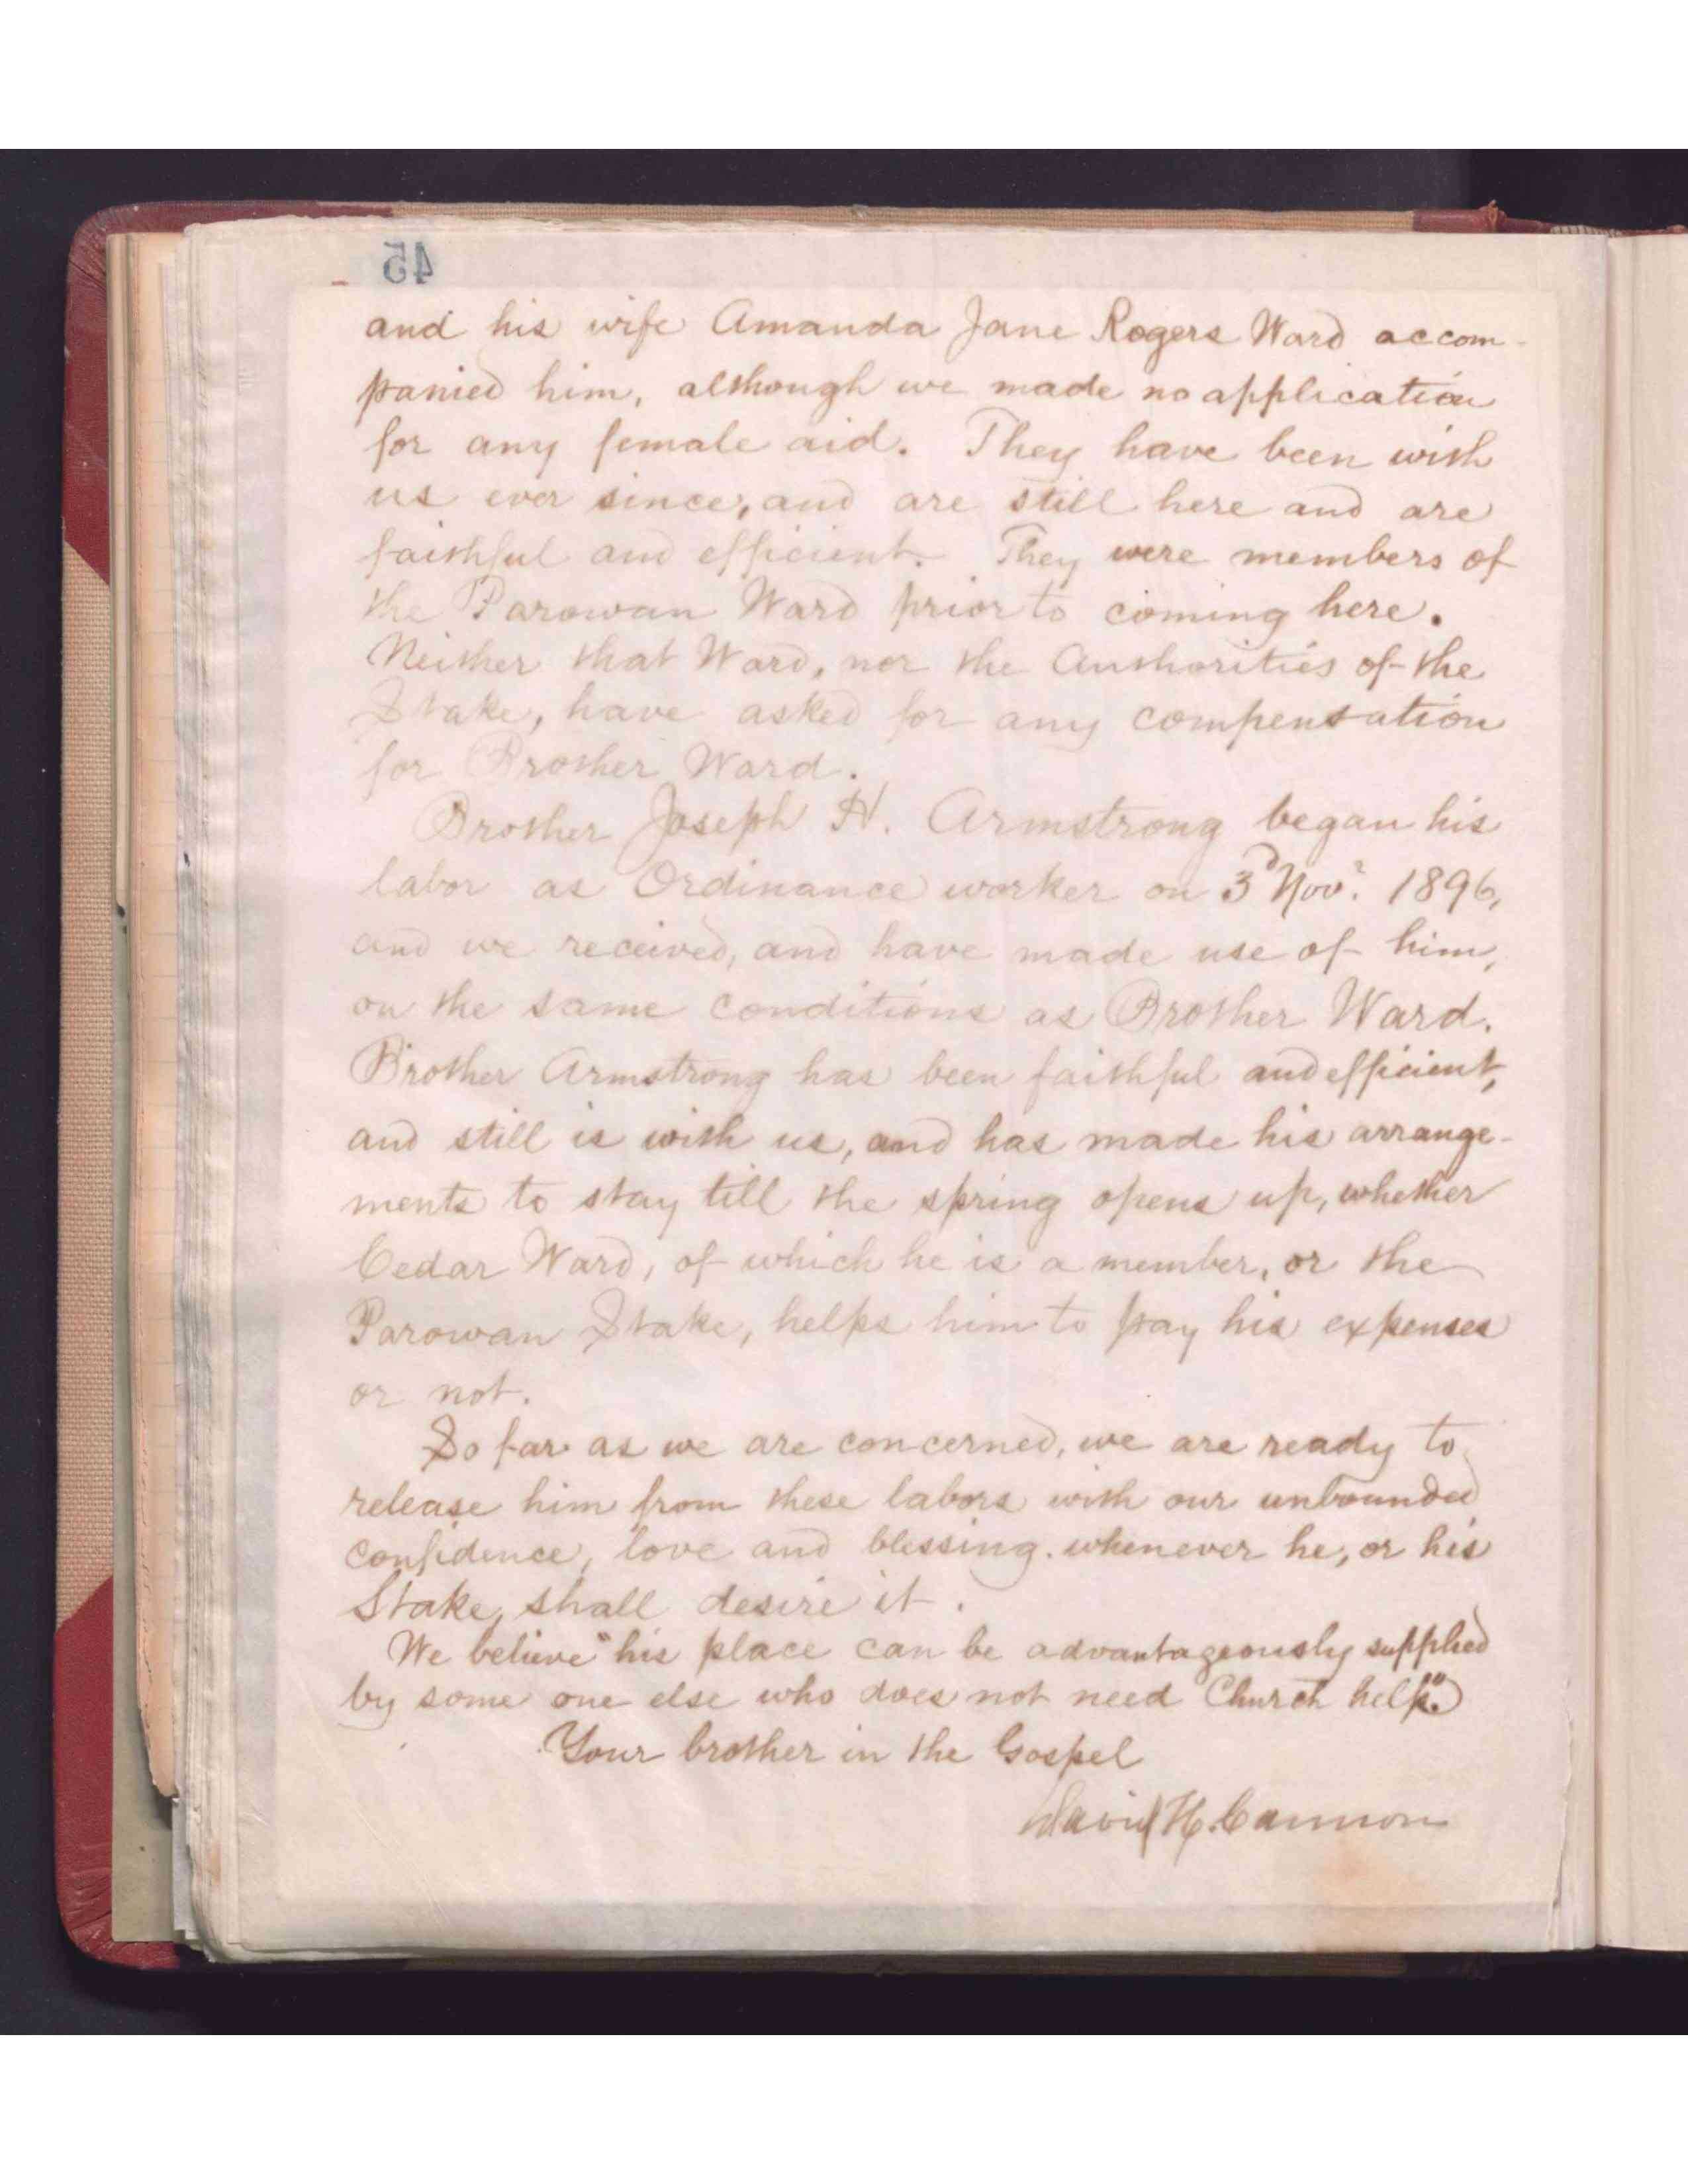 45
and his wife Amanda Jane Rogers Ward accom-
panied him, although we made no application
for any female aid. They have been with
us ever since, and are still here and are
faithful and efficient. They were members of
the Parowan Ward prior to coming here.
Neither that Ward, nor the Authorities of the
Stake, have asked for any compensation
for Brother Ward.
Brother Joseph H. Armstrong began his
labor as Ordinance worker on 3d Nov. 1896,
and we received, and have made use of him,
on the same conditions as Brother Ward.
Brother Armstrong has been faithful and efficient,
and still is with us, and has made his arrange-
ments to stay till the spring opens up, whether
Cedar Ward, of which he is a member, or the
Parowan Stake, helps him to pay his expenses
or not.
So far as we are concerned, we are ready to
release him from these labors with our unbounded
confidence, love and blessing. whenever he, or his
Stake, shall desire it.
We believe "his place can be advantageously supplied
by some one else who does not need Church help."
Your brother in the Gospel
David H. Cannon